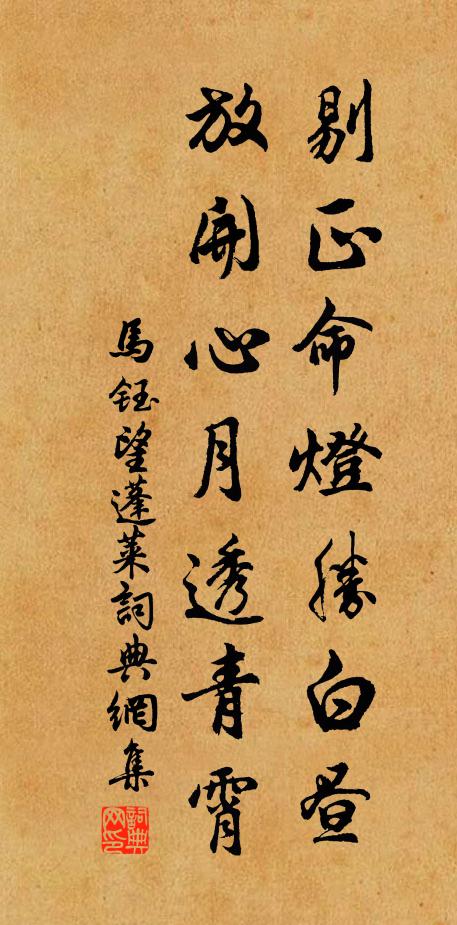 剔正命燈勝白晝
放開心月透青霄
馬鈺望蓬萊詞典網集
詞典网印